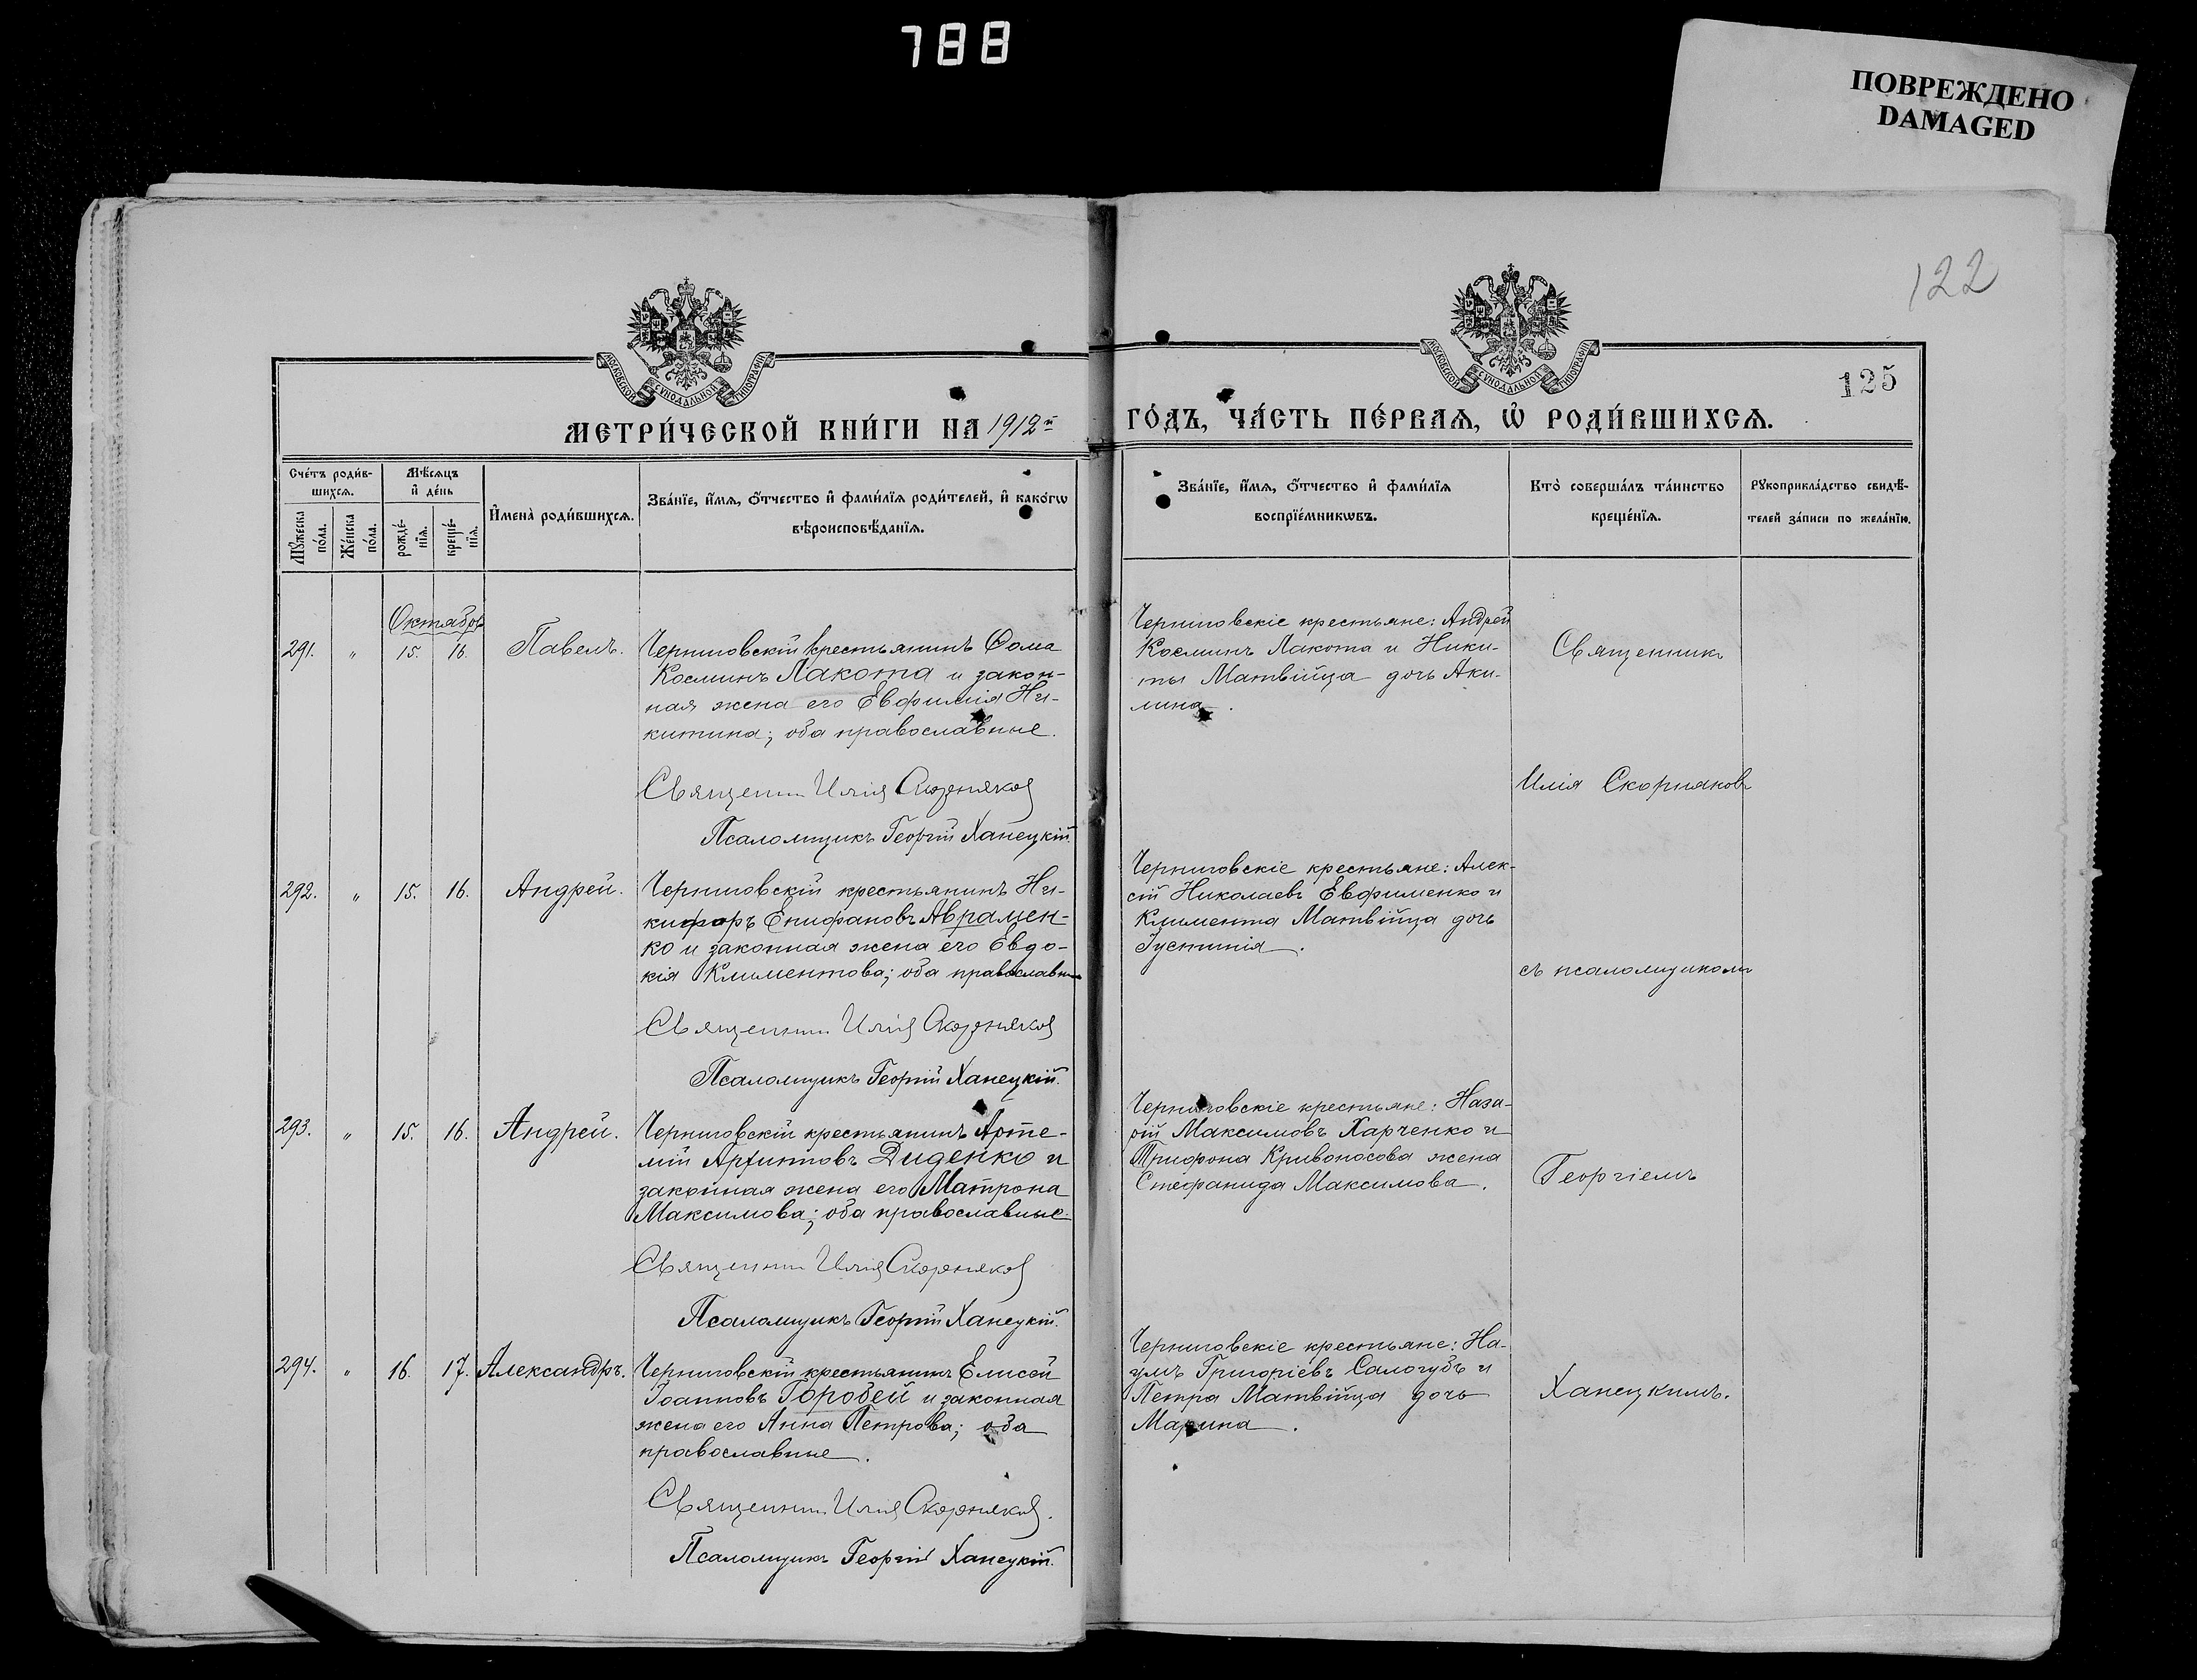 788
ПОВРЕЖДЕНО
DAMAGED
122
125
МОСКОВСКОЙ СѴНОДАЛЬНОЙ ТИПОГРАФІИ
МОСКОВСКОЙ СѴНОДАЛЬНОЙ ТИПОГРАФІИ
МЕТРИ́ЧЕСКОЙ КНИ́ГИ НА 1912й
ГО́ДЪ, ЧА́СТЬ ПЕ́РВАѦ, Ѡ҆ РОДИ́ВШИХСѦ.
Сче́тъ роди́в-
шихсѧ.
Мꙋ́жеска
по́ла.
Же́нска
по́ла.
Мѣ́сѧцъ
и҆ де́нь
рожде́-
нїѧ.
креще́-
нїѧ.
И҆мена̀ роди́вшихсѧ.
Зва́нїе, и҆́мѧ, ѻ҆́тчество и҆ фами́лїѧ роди́телей, и҆ како́гѡ
вѣроисповѣ́данїѧ.
Зва́нїе, и҆́мѧ, ѻ҆́тчество и҆ фами́лїѧ
воспрїе́мникѡвъ.
Кто̀ соверша́лъ та́инство
креще́нїѧ.
Рꙋкоприкла́дство свидѣ́-
телей за́писи по жела́нїю.
Октябрь
291. " 15. 16. Павелъ.
Черниговскій крестьянинъ Ѳома
Косминъ Лакота и закон-
ная жена его Евфимія Ни-
китина; оба православные.
Священник Илія Скорняков
Псаломщикъ Георгій Ханецкій.
Черниговскіе крестьяне: Андрей
Косминъ Лакота и Ники-
ты Матвійца дочь Аки-
лина.
Священникъ
Илія Скорняковъ
292. " 15. 16. Андрей.
Черниговскій крестьянинъ Ни-
кифоръ Епифановъ Аврамен-
ко и законная жена его Евдо-
кія Климентова; оба православн
Священник Илія Скорняков
Псаломщикъ Георгій Ханецкій.
Черниговскіе крестьяне: Алек-
сій Николаевъ Евфименко и
Климента Матвійца дочь
Іустинія.
съ псаломщикомъ
293. " 15. 16. Андрей.
Черниговскій крестьянинъ Арте-
мій Архиповъ Диденко и
законная жена его Матрона
Максимова; оба православные.
Священник Илія Скорняков
Псаломщикъ Георгій Ханецкій.
Черниговскіе крестьяне: Наза-
рій Максимовъ Харченко и
Трифона Кривоносова жена
Стефанида Максимова.
Георгіемъ
294. " 16. 17. Александръ.
Черниговскій крестьянинъ Елисей
Іоанновъ Горобей и законная
жена его Анна Петрова; оба
православные.
Священник Илія Скорняков.
Псаломщикъ Георгій Ханецкій.
Черниговскіе крестьяне: На-
умъ Григоріевъ Сологубъ и
Петра Матвійца дочь
Марина.
Ханецкимъ.